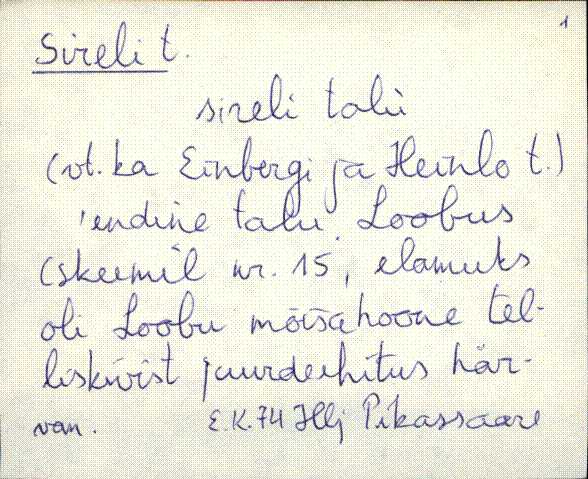 1
Sireli t.
sireli talu
(vt. ka Einbergi ja Heinlo t.)
'endine talu' Loobus
(skeemil nr. 15, elamuks
oli Loobu mõisahoone tel-
liskivist juurdeehitus här-
van. E.K.74 Hlj Pikassaare